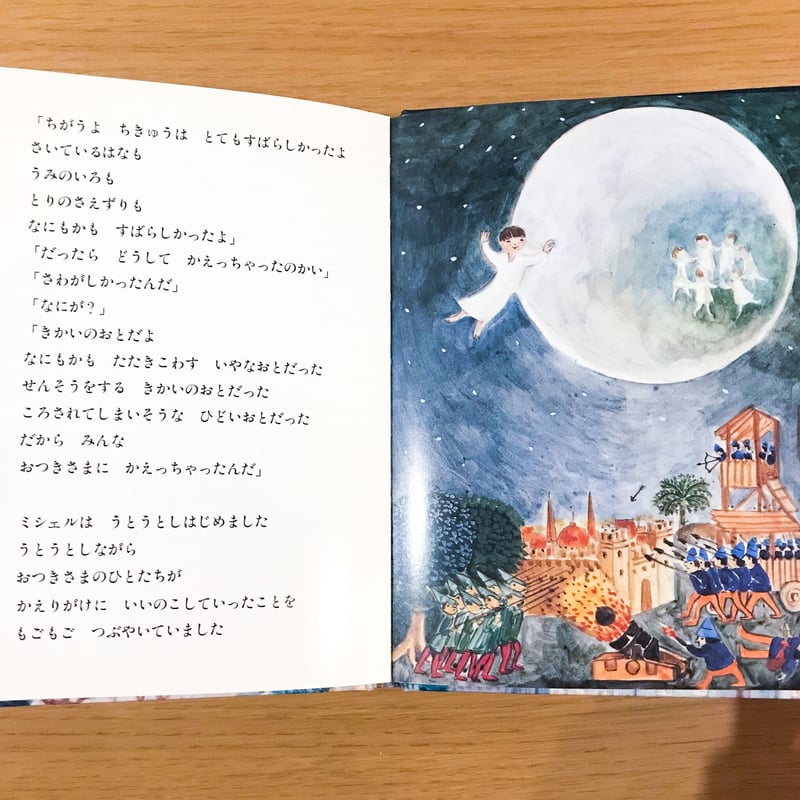 「ちがうよ　ちきゅうは　とてもすばらしかったよ
さいているはなも
うみのいろも
とりのさえずりも
なにもかも　すばらしかったよ」
「だったら　どうして　かえっちゃったのかい」
「さわがしかったんだ」
「なにが？」
「きかいのおとだよ
なにもかも　たたきこわす　いやなおとだった
せんそうをする　きかいのおとだった
ころされてしまいそうな　ひどいおとだった
だから　みんな
おつきさまに　かえっちゃったんだ」
ミシェルは　うとうとしはじめました
うとうとしながら
おつきさまのひとたちが
かえりがけに　いいのこしていったことを
もごもご　つぶやいていました